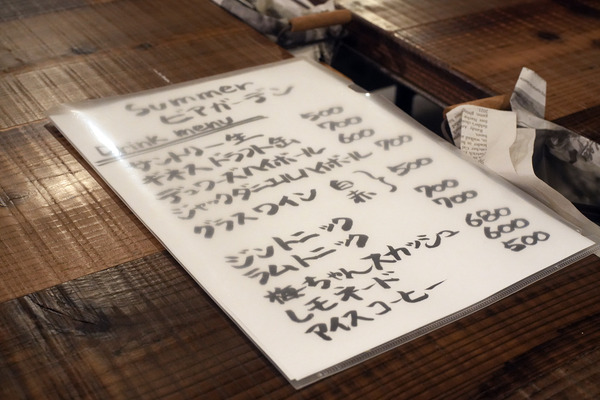 Summer
ビアガーデン
Drink menu
サントリー生 500
ギネスドラフト缶 700
デュワーズハイボール 600
ジャックダニエルハイボール 700
グラスワイン 白 赤 } 500
ジントニック 700
ラムトニック 700
梅ちゃんスカッシュ 680
レモネード 600
アイスコーヒー 500